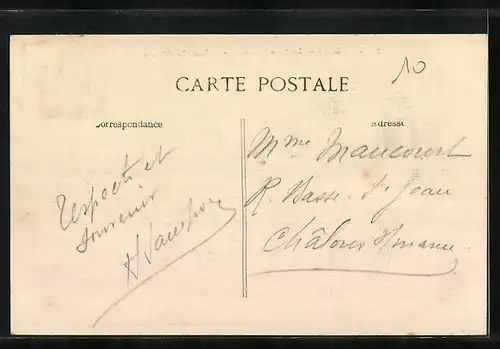 10
CARTE POSTALE
Correspondance
Adresse
Respects et
souvenir
Mme Maucourt
R. Basse St Jean
Châlons s/marne